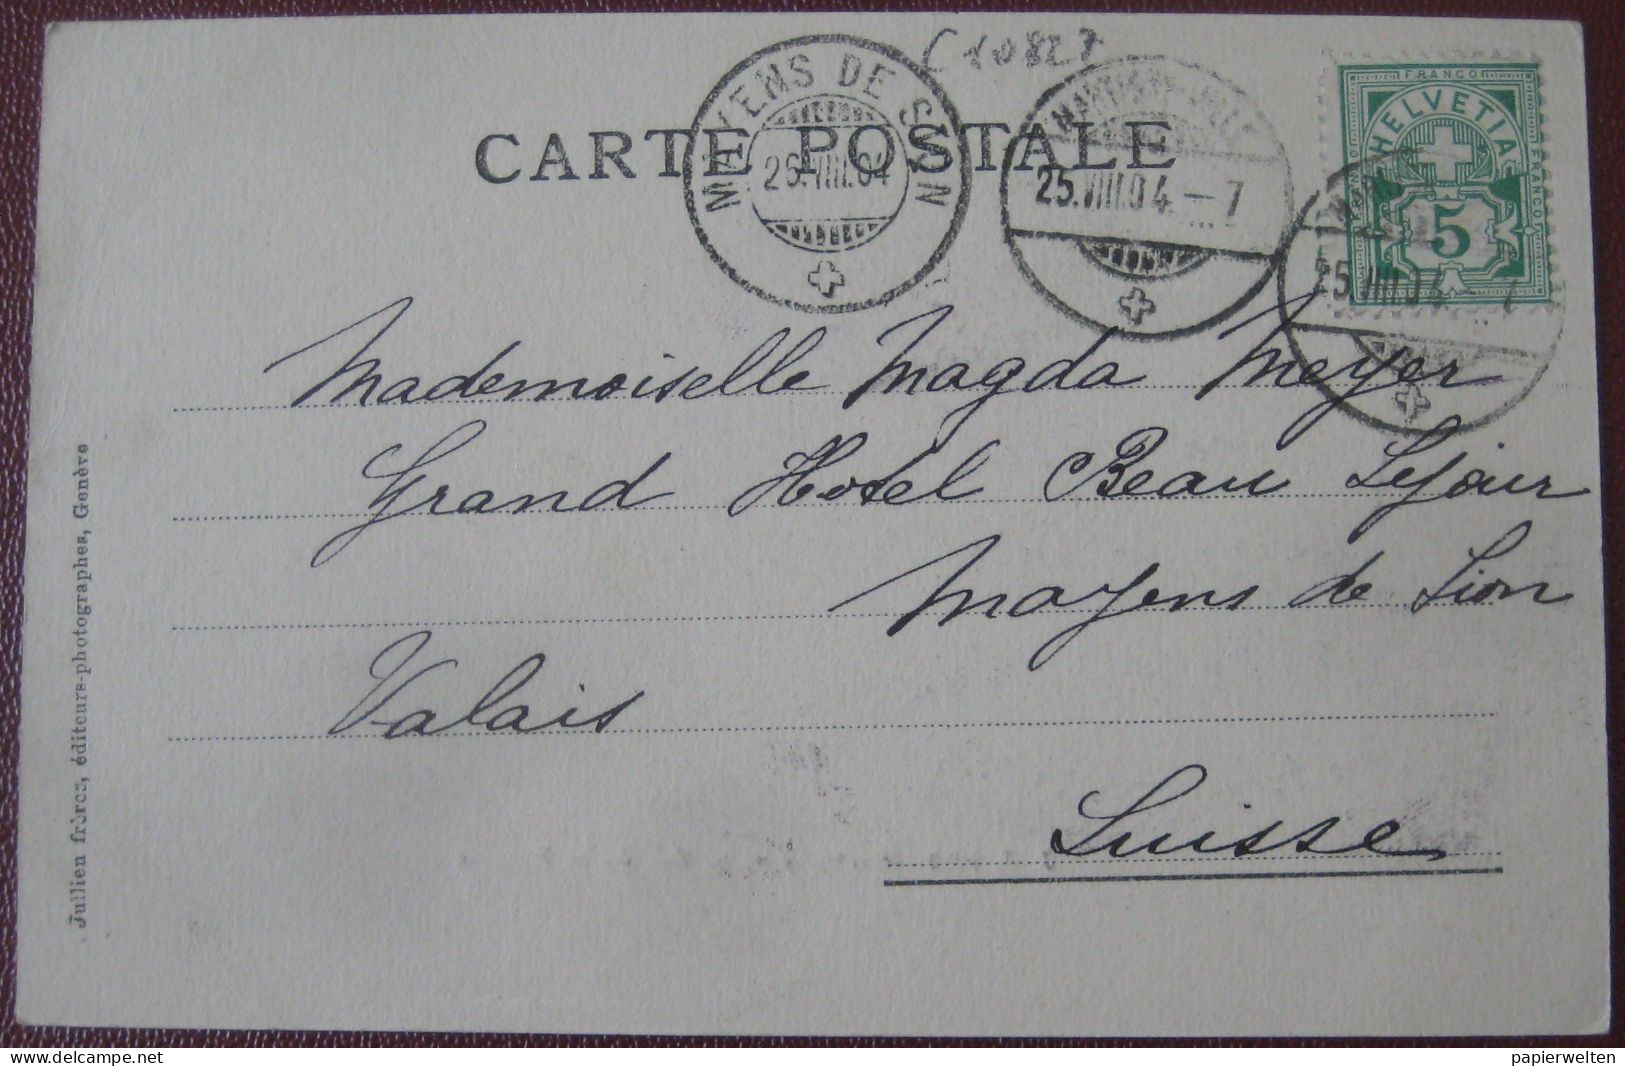 C 10827
CARTE POSTALE
MAYENS DE SION
26.VIII.04
25.VIII.04 - 7
FRANCO
HELVETIA
FRANCO
5
25.VIII.04 - 7
Mademoiselle Magda Meyer
Grand Hotel Beau Sejour
Mayens de Sion
Valais
Suisse
Jullien frères, éditeurs-photographes, Genève
Delcampe.net
papierwelten